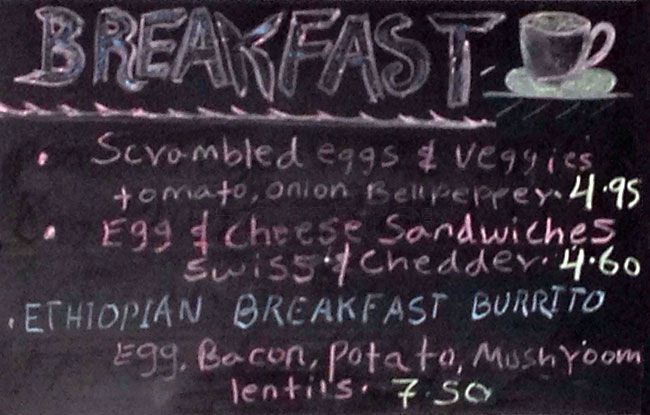 BREAKFAST
• Scrambled eggs & veggies
tomato, onion Bellpepper. 4.95
• Egg & cheese Sandwiches
swiss & chedder. 4.60
. ETHIOPIAN BREAKFAST BURRITO
Egg, Bacon, potato, Mushroom
lentils. 7.50